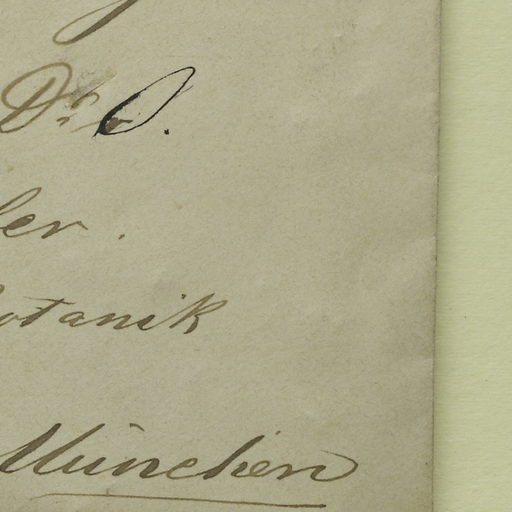 Dr. O.
ler.
otanik
München